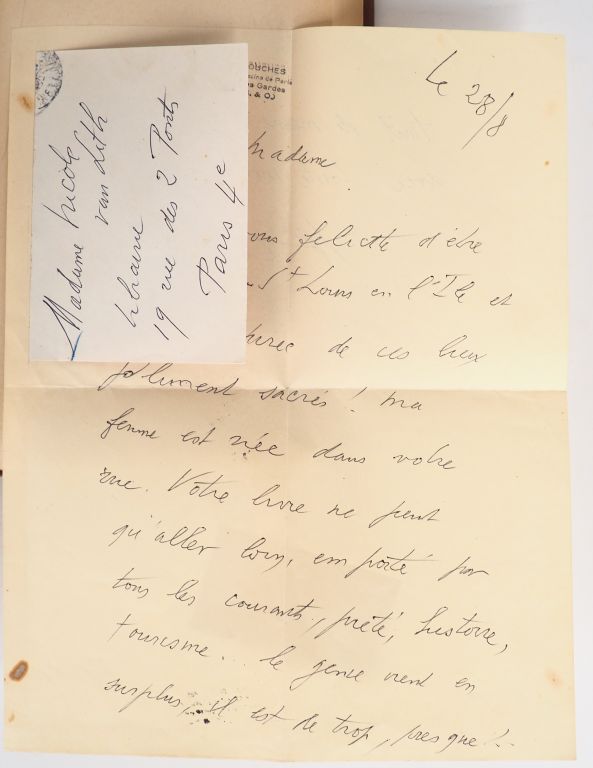 Madame Nicole
van Lith
libraire
19 rue des 2 Ponts
Paris 4e
OUCHES
de Paris
Gardes
& OJ
Le 28/8
Madame
vous felicite d'être
St Louis en l'Ile et
de ces lieux
joliment sacrés! ma
femme est née dans votre
rue. Votre livre ne peut
qu'aller loin, emporté par
tous les courants, piété, histoire,
tourisme.. le genie vient en
surplus, il est de trop, presque!..